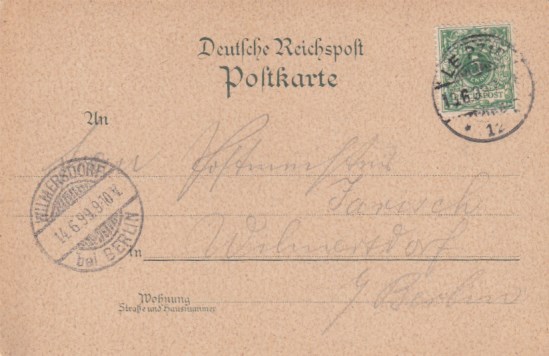 Deutsche Reichspost
Postkarte
LEIPZIG
12
An
Herrn Postmeister
Jarosch
WILMERSDORF
14.6.99.9-10.V.
bei BERLIN
in Wilmersdorf
b/ Berlin
Wohnung
Straße und Hausnummer